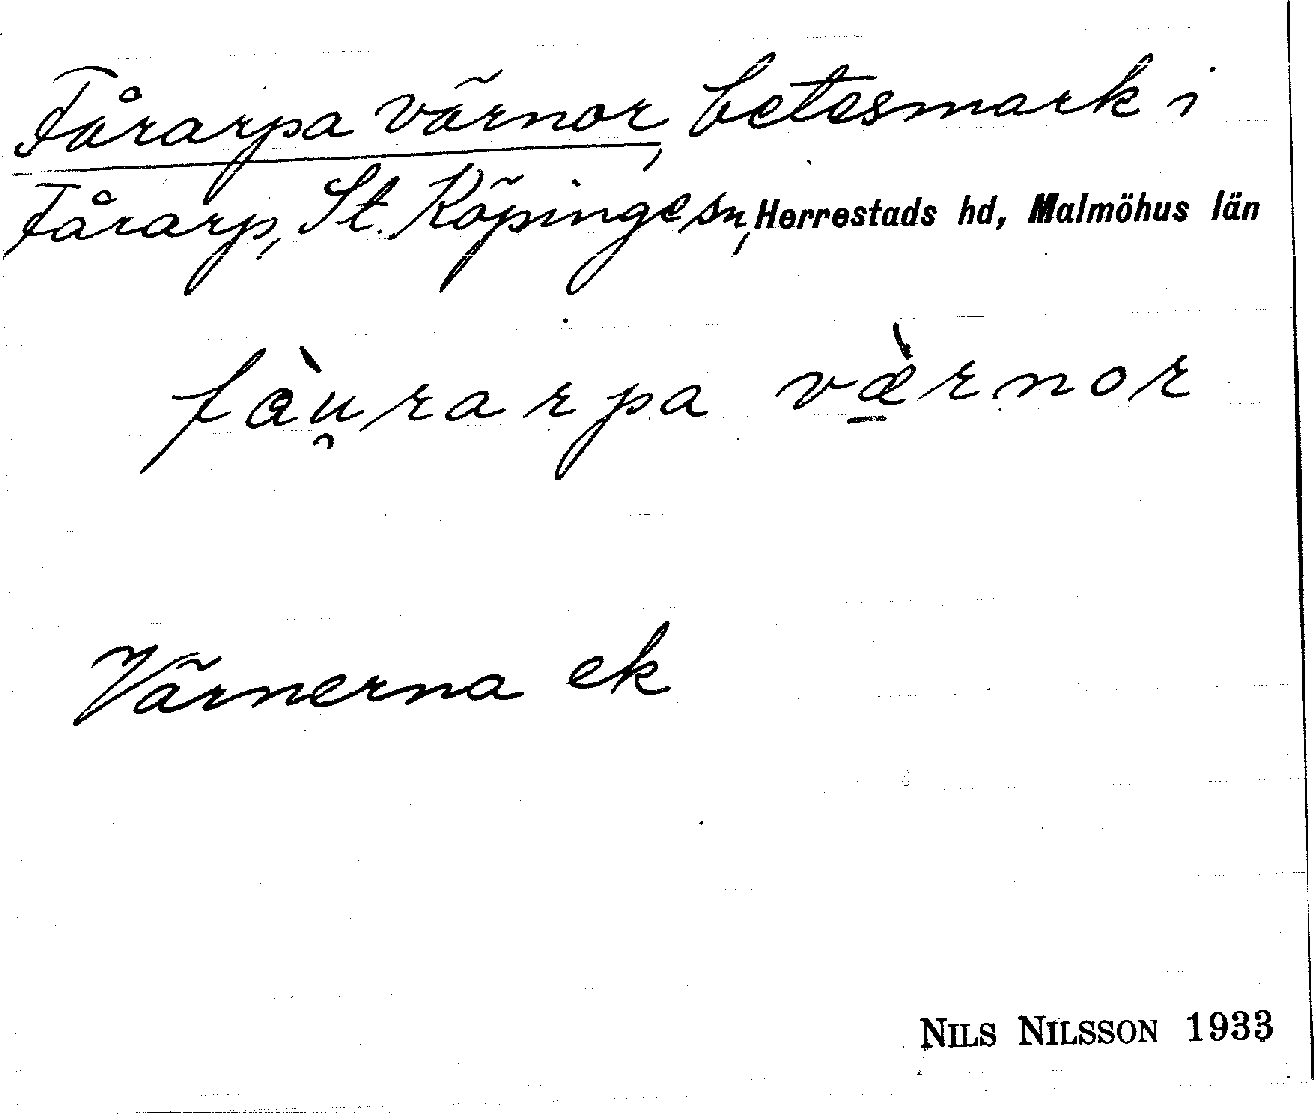 Fårarpa värnor, betesmark i
Fårarp, St. Köpinge sn, Herrestads hd, Malmöhus län
fàu̯rarpa væ̀rnor
Värnerna ek
NILS NILSSON 1933